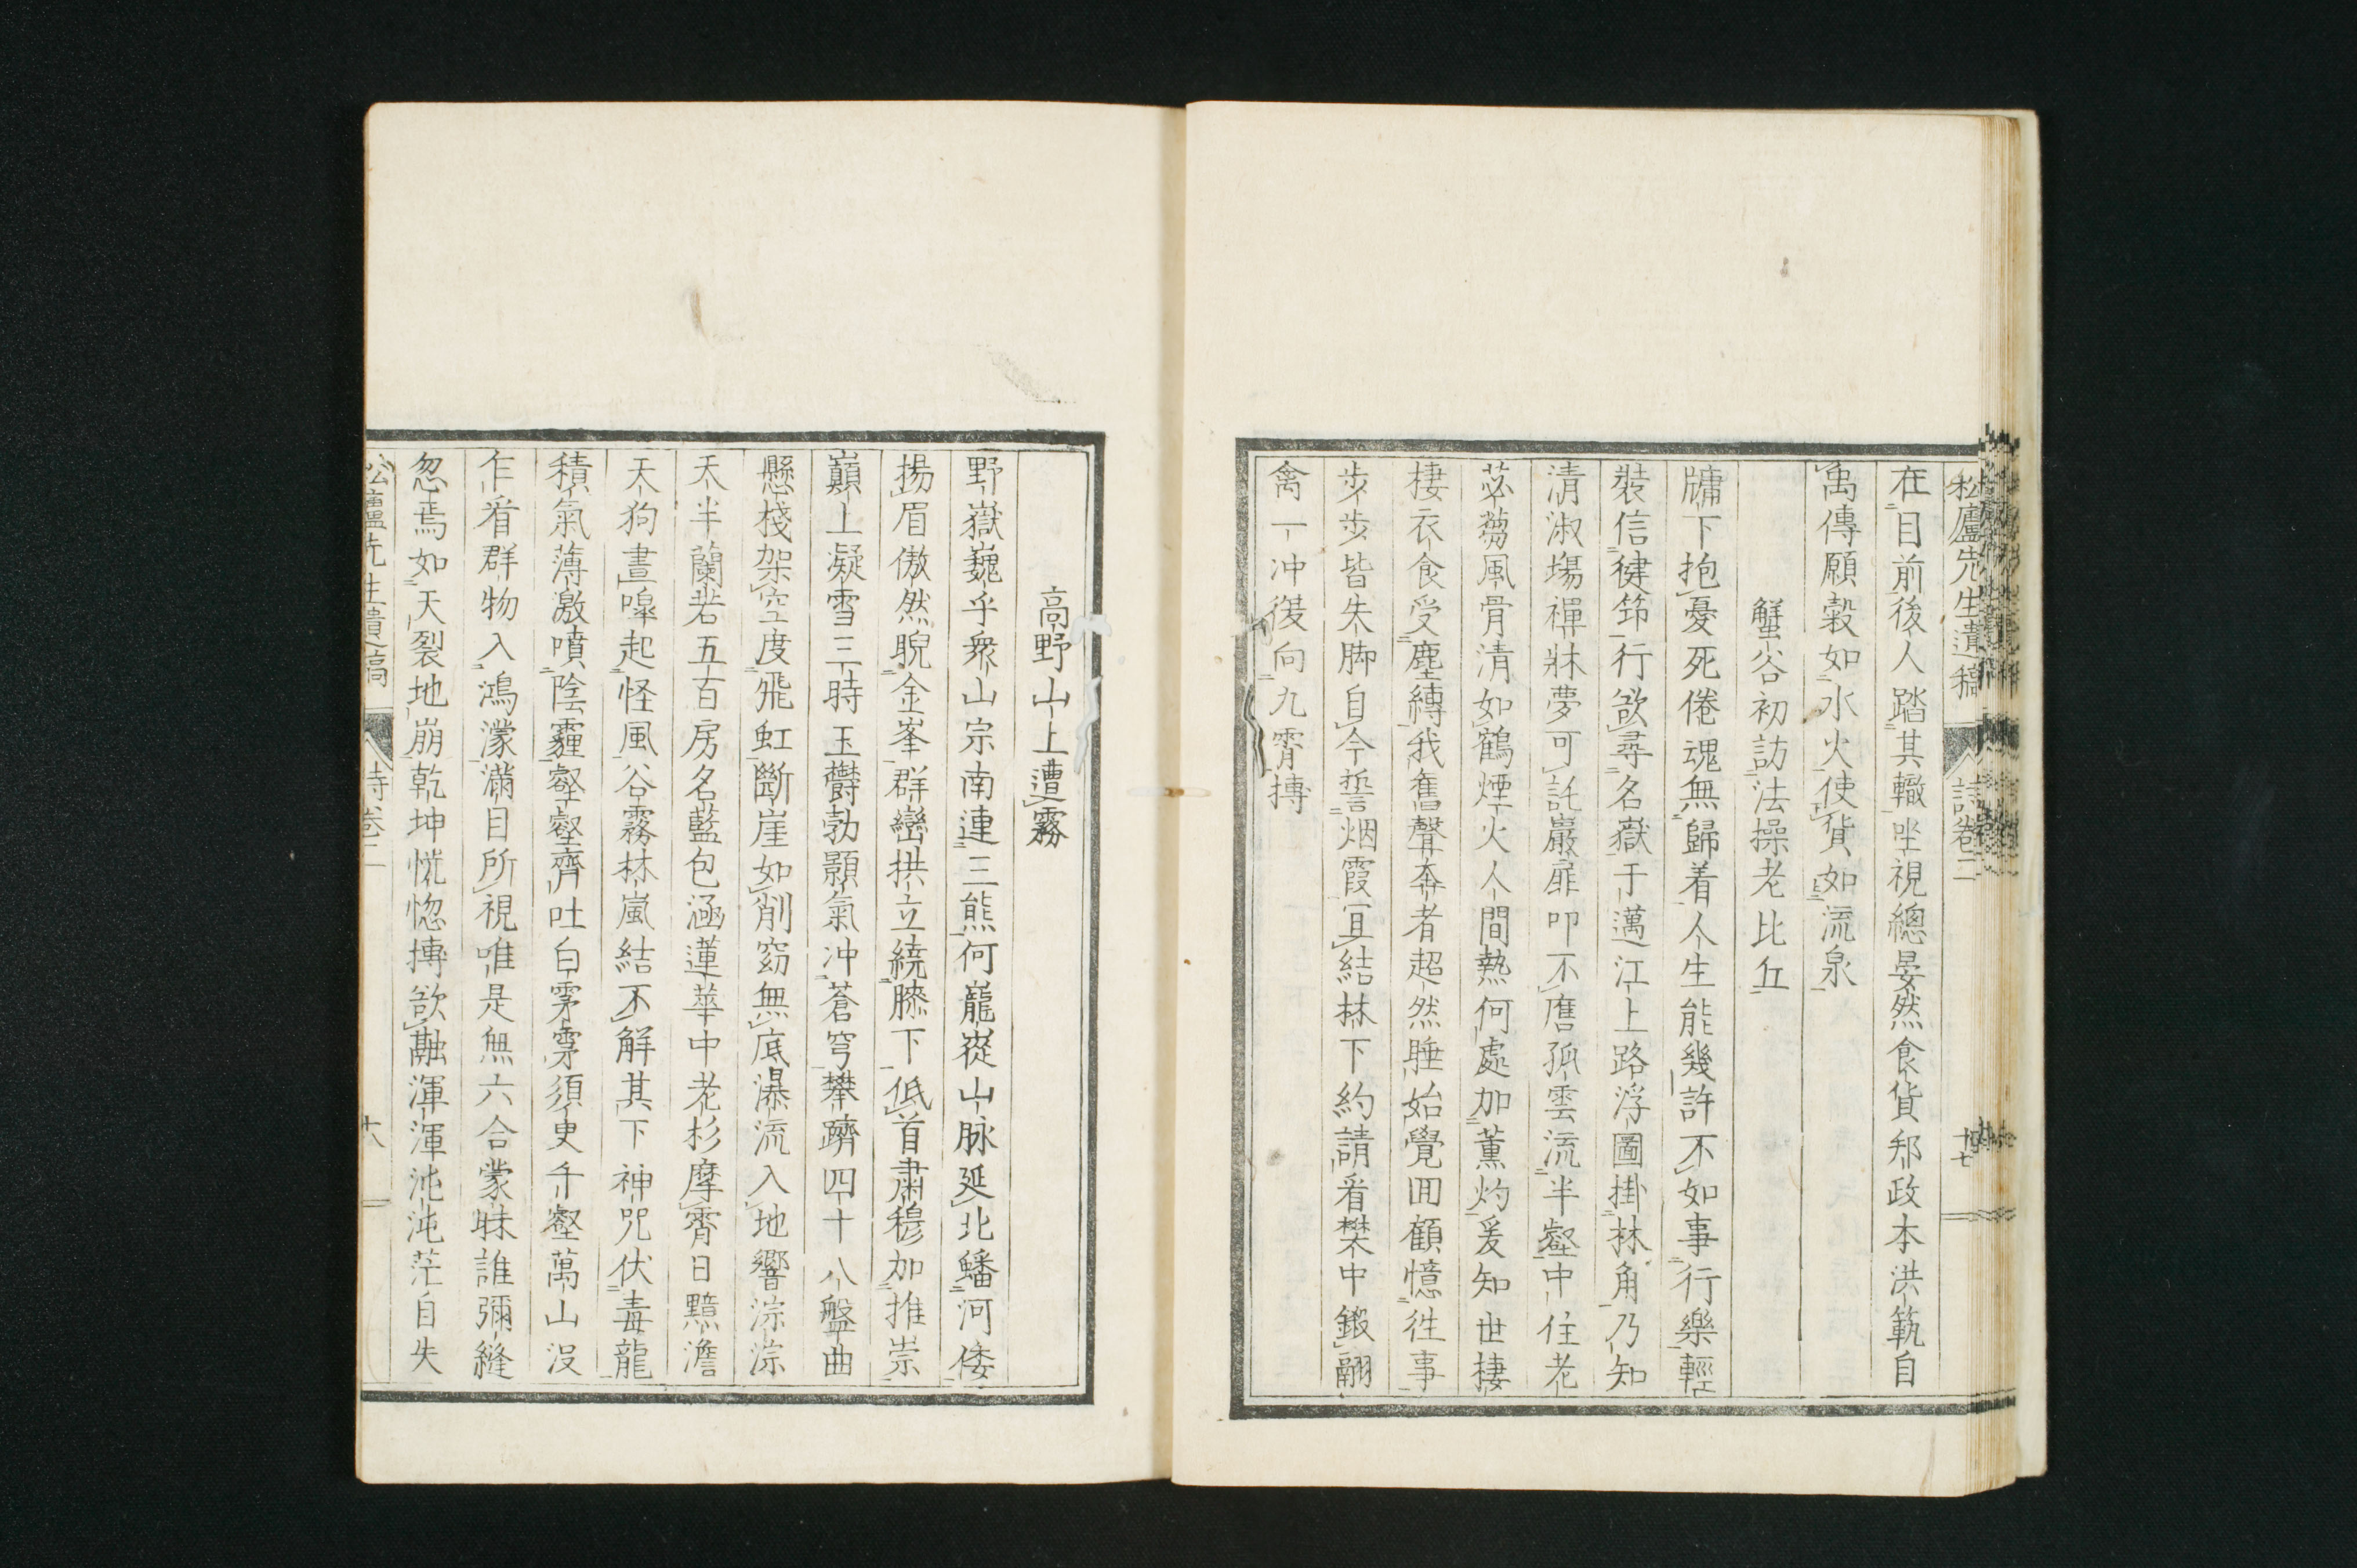 松廬先生遺稿 詩卷二 十七
在目前後人踏其轍坐視總晏然食貨邦政本洪範自
禹傳願穀如水火使貨如流泉
蟹谷初訪法操老比丘
牗下抱憂死倦魂無歸着人生能幾許不如事行樂輕
裝信健笻行欲尋名嶽于邁江上路浮圖掛林角乃知
清淑場禪牀夢可託巖扉叩不譍孤雲流半壑中住老
苾蒭風骨清如鶴煙火人間熱何處加薰灼爰知世棲
棲衣食受塵縛我舊聲奔者超然睡始覺回顧憶往事
步步皆失脚自今誓烟霞宜結林下約請看樊中鎩翮
禽一冲復向九霄搏
高野山上遭霧
野嶽巍乎衆山宗南連三熊何巃嵸山脉延北蟠河倭
揚眉傲然睨金峯群巒拱立繞膝下低首肅穆加推崇
巓上凝雪三時玉欝勃顥氣冲蒼穹攀躋四十八盤曲
懸棧架空度飛虹斷崖如削窈無底瀑流入地響淙淙
天半蘭若五百房名藍包涵蓮華中老杉摩霄日黯澹
天狗晝嘷起怪風谷霧林嵐結不解其下神咒伏毒龍
積氣薄激噴陰霾壑壑齊吐白雺雺須臾千壑萬山沒
乍看群物入鴻濛滿目所視唯是無六合蒙昧誰彌縫
忽焉如天裂地崩乾坤恍惚摶欲融渾渾沌沌茫自失
松廬先生遺稿 詩卷二 十八